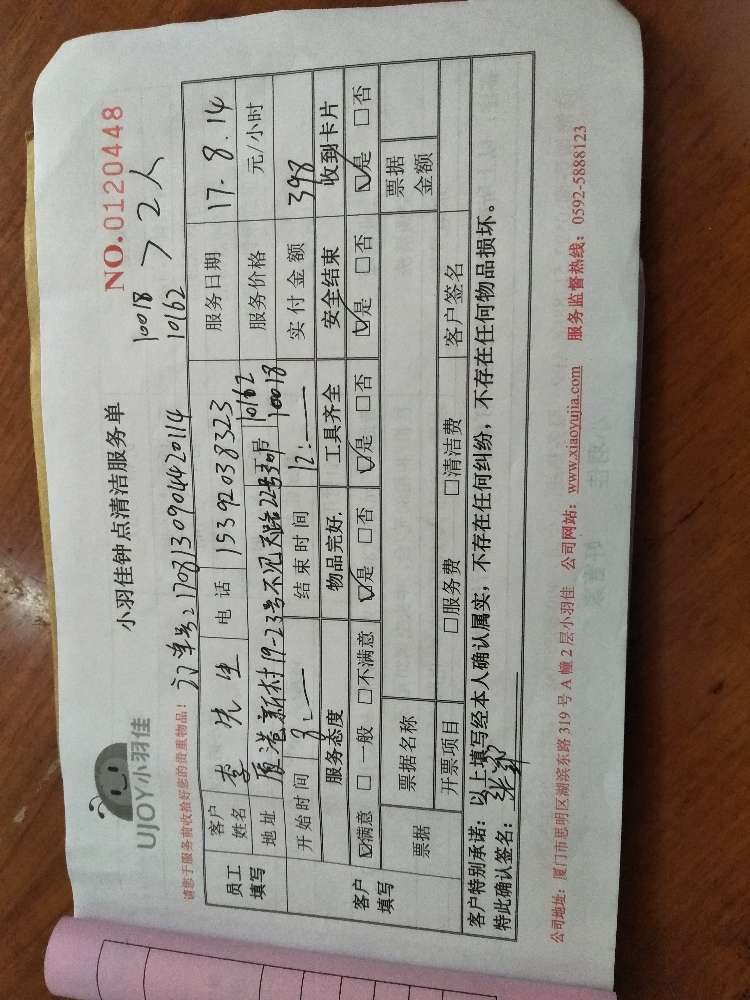 UJOY小羽佳
小羽佳钟点清洁服务单
NO.0120448
10018
10162 > 2人
请您于服务前收拾好您的贵重物品!
订单号:1708130904420114
员工填写
客户姓名 李先生 电话 15392038323 服务日期 17.8.14
地址 厦港新村19-23号 工号 10162 10018 服务价格 元/小时
开始时间 结束时间 12:— 实付金额 398
客户填写
服务态度 物品完好 工具齐全 安全结束 收到卡片
☑满意 □一般 □不满意 ☑是 □否 ☑是 □否 ☑是 □否 ☑是 □否
票据 票据名称 票据金额
开票项目 □服务费 □清洁费 客户签名
客户特别承诺:以上填写经本人确认属实,不存在任何纠纷,不存在任何物品损坏。
特此确认签名:
公司地址:厦门市思明区湖滨东路319号A幢2层小羽佳 公司网站:www.xiaoyujia.com 服务监督热线:0592-5888123